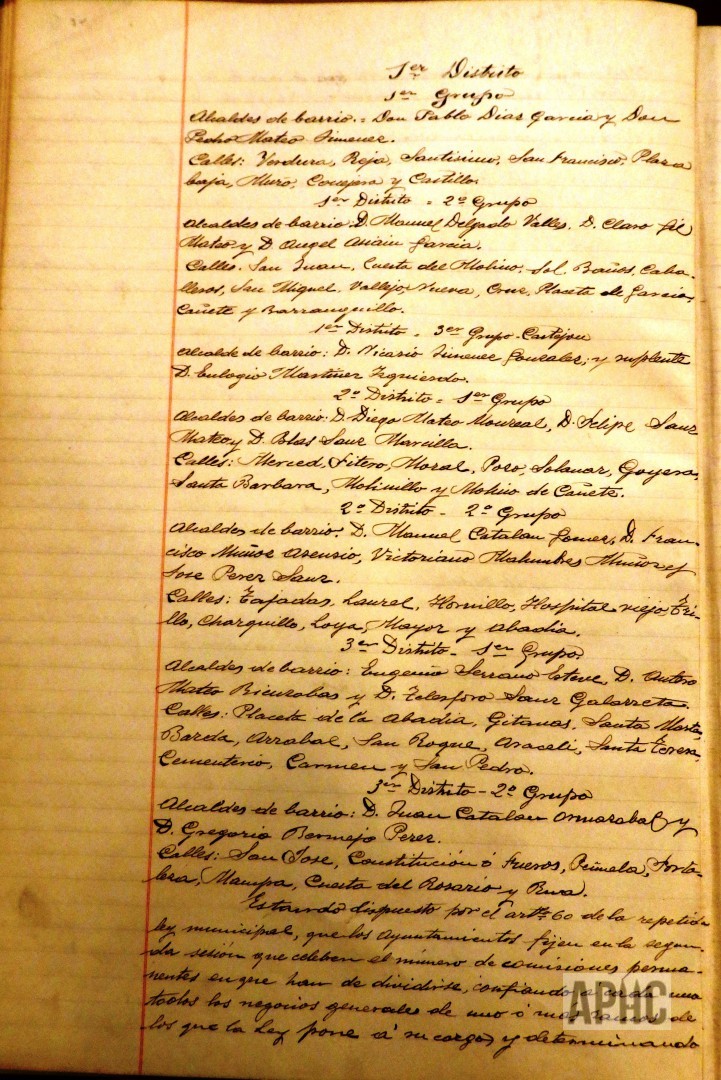 1er Distrito
1er Grupo
Alcaldes de barrio.= Don Pablo Dias Garcia y Don
Pedro Mateo Jimenez.
Calles: Verdura, Reja, Santisimo, San Francisco, Plaza
baja, Muro, Conejera y Castillo.
1er Distrito = 2º Grupo
Alcaldes de barrio: D. Manuel Delgado Valles, D. Claro Gil
Mateo y D. Angel García.
Calles. San Juan, Cuesta del Molino, Sol, Baños, Caba-
lleros, San Miguel, Vallejo, Nueva, Cruz, Placeta de Garcia,
Cañete y Barranquillo.
1er Distrito - 3er Grupo - Castejon
Alcalde de barrio: D. Vicario Jimenez Gonzalez, y suplente
D. Eulogio Martinez Izquierdo.
2º Distrito = 1er Grupo
Alcaldes de barrio: D. Diego Mateo Monreal, D. Felipe Sanz
Mateo y D. Blas Sanz Marcilla.
Calles: Merced, Fitero, Moral, Pozo, Solanar, Goyera,
Santa Barbara, Molinillo y Molino de Cañete.
2º Distrito - 2º Grupo
Alcaldes de barrio: D. Manuel Catalan Gomez, D. Fran-
cisco Muñoz Asensio, Victoriano Malumbres Muñoz y
Jose Perez Sanz.
Calles: Tajadas, Laurel, Hornillo, Hospital viejo, Tri-
llo, Charquillo, Loya, Mayor y Abadia.
3er Distrito - 1er Grupo
Alcaldes de barrio: Eugenio Serrano Esteve, D. Antero
Mateo y D. Telesforo Sanz Galarreta.
Calles: Placeta de la Abadia, Gitanas, Santa Marta,
Barda, Arrabal, San Roque, Araceli, Santa Teresa,
Cementerio, Carmen y San Pedro.
3er Distrito - 2º Grupo
Alcaldes de barrio: D. Juan Catalan Ormazabal y
D. Gregorio Bermejo Perez.
Calles: San Jose, Constitución ó Fueros, Peñuela, Porta-
lera, Mampa, Cuesta del Rosario y Rua.
Estando dispuesto por el artº 60 de la repetida
ley municipal, que los Ayuntamientos fijen en la segun-
da sesión que celebren el número de comisiones perma-
nentes en que han de dividirse, confiando á cada una
todos los negocios generales de uno ó mas ramos de
los que la Ley pone á su cargo, y determinando
APHC